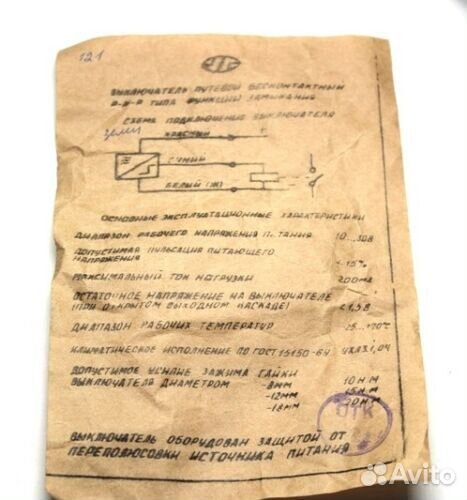 121
ВЫКЛЮЧАТЕЛЬ ПУТЕВОЙ БЕСКОНТАКТНЫЙ
P-N-P ТИПА ФУНКЦИИ ЗАМЫКАНИЯ
СХЕМА ПОДКЛЮЧЕНИЕ ВЫКЛЮЧАТЕЛЯ
КРАСНЫЙ
СИНИЙ
БЕЛЫЙ (Ж)
ОСНОВНЫЕ ЭКСПЛУАТАЦИОННЫЕ ХАРАКТЕРИСТИКИ
ДИАПАЗОН РАБОЧЕГО НАПРЯЖЕНИЯ ПИТАНИЯ 10...30В
ДОПУСТИМАЯ ПУЛЬСАЦИЯ ПИТАЮЩЕГО
НАПРЯЖЕНИЯ 15%
МАКСИМАЛЬНЫЙ ТОК НАГРУЗКИ 200мА
ОСТАТОЧНОЕ НАПРЯЖЕНИЕ НА ВЫКЛЮЧАТЕЛЕ
(ПРИ ОТКРЫТОМ ВЫХОДНОМ КАСКАДЕ) <1,5В
ДИАПАЗОН РАБОЧИХ ТЕМПЕРАТУР +70°С
КЛИМАТИЧЕСКОЕ ИСПОЛНЕНИЕ ПО ГОСТ 15150-69 УХЛ3.1,О4
ДОПУСТИМОЕ УСИЛИЕ ЗАЖИМА ГАЙКИ
ВЫКЛЮЧАТЕЛЯ ДИАМЕТРОМ -8мм 10НМ
-12мм 15НМ
-18мм 20НМ
ОТК
ВЫКЛЮЧАТЕЛЬ ОБОРУДОВАН ЗАЩИТОЙ ОТ
ПЕРЕПОЛЮСОВКИ ИСТОЧНИКА ПИТАНИЯ
Avito